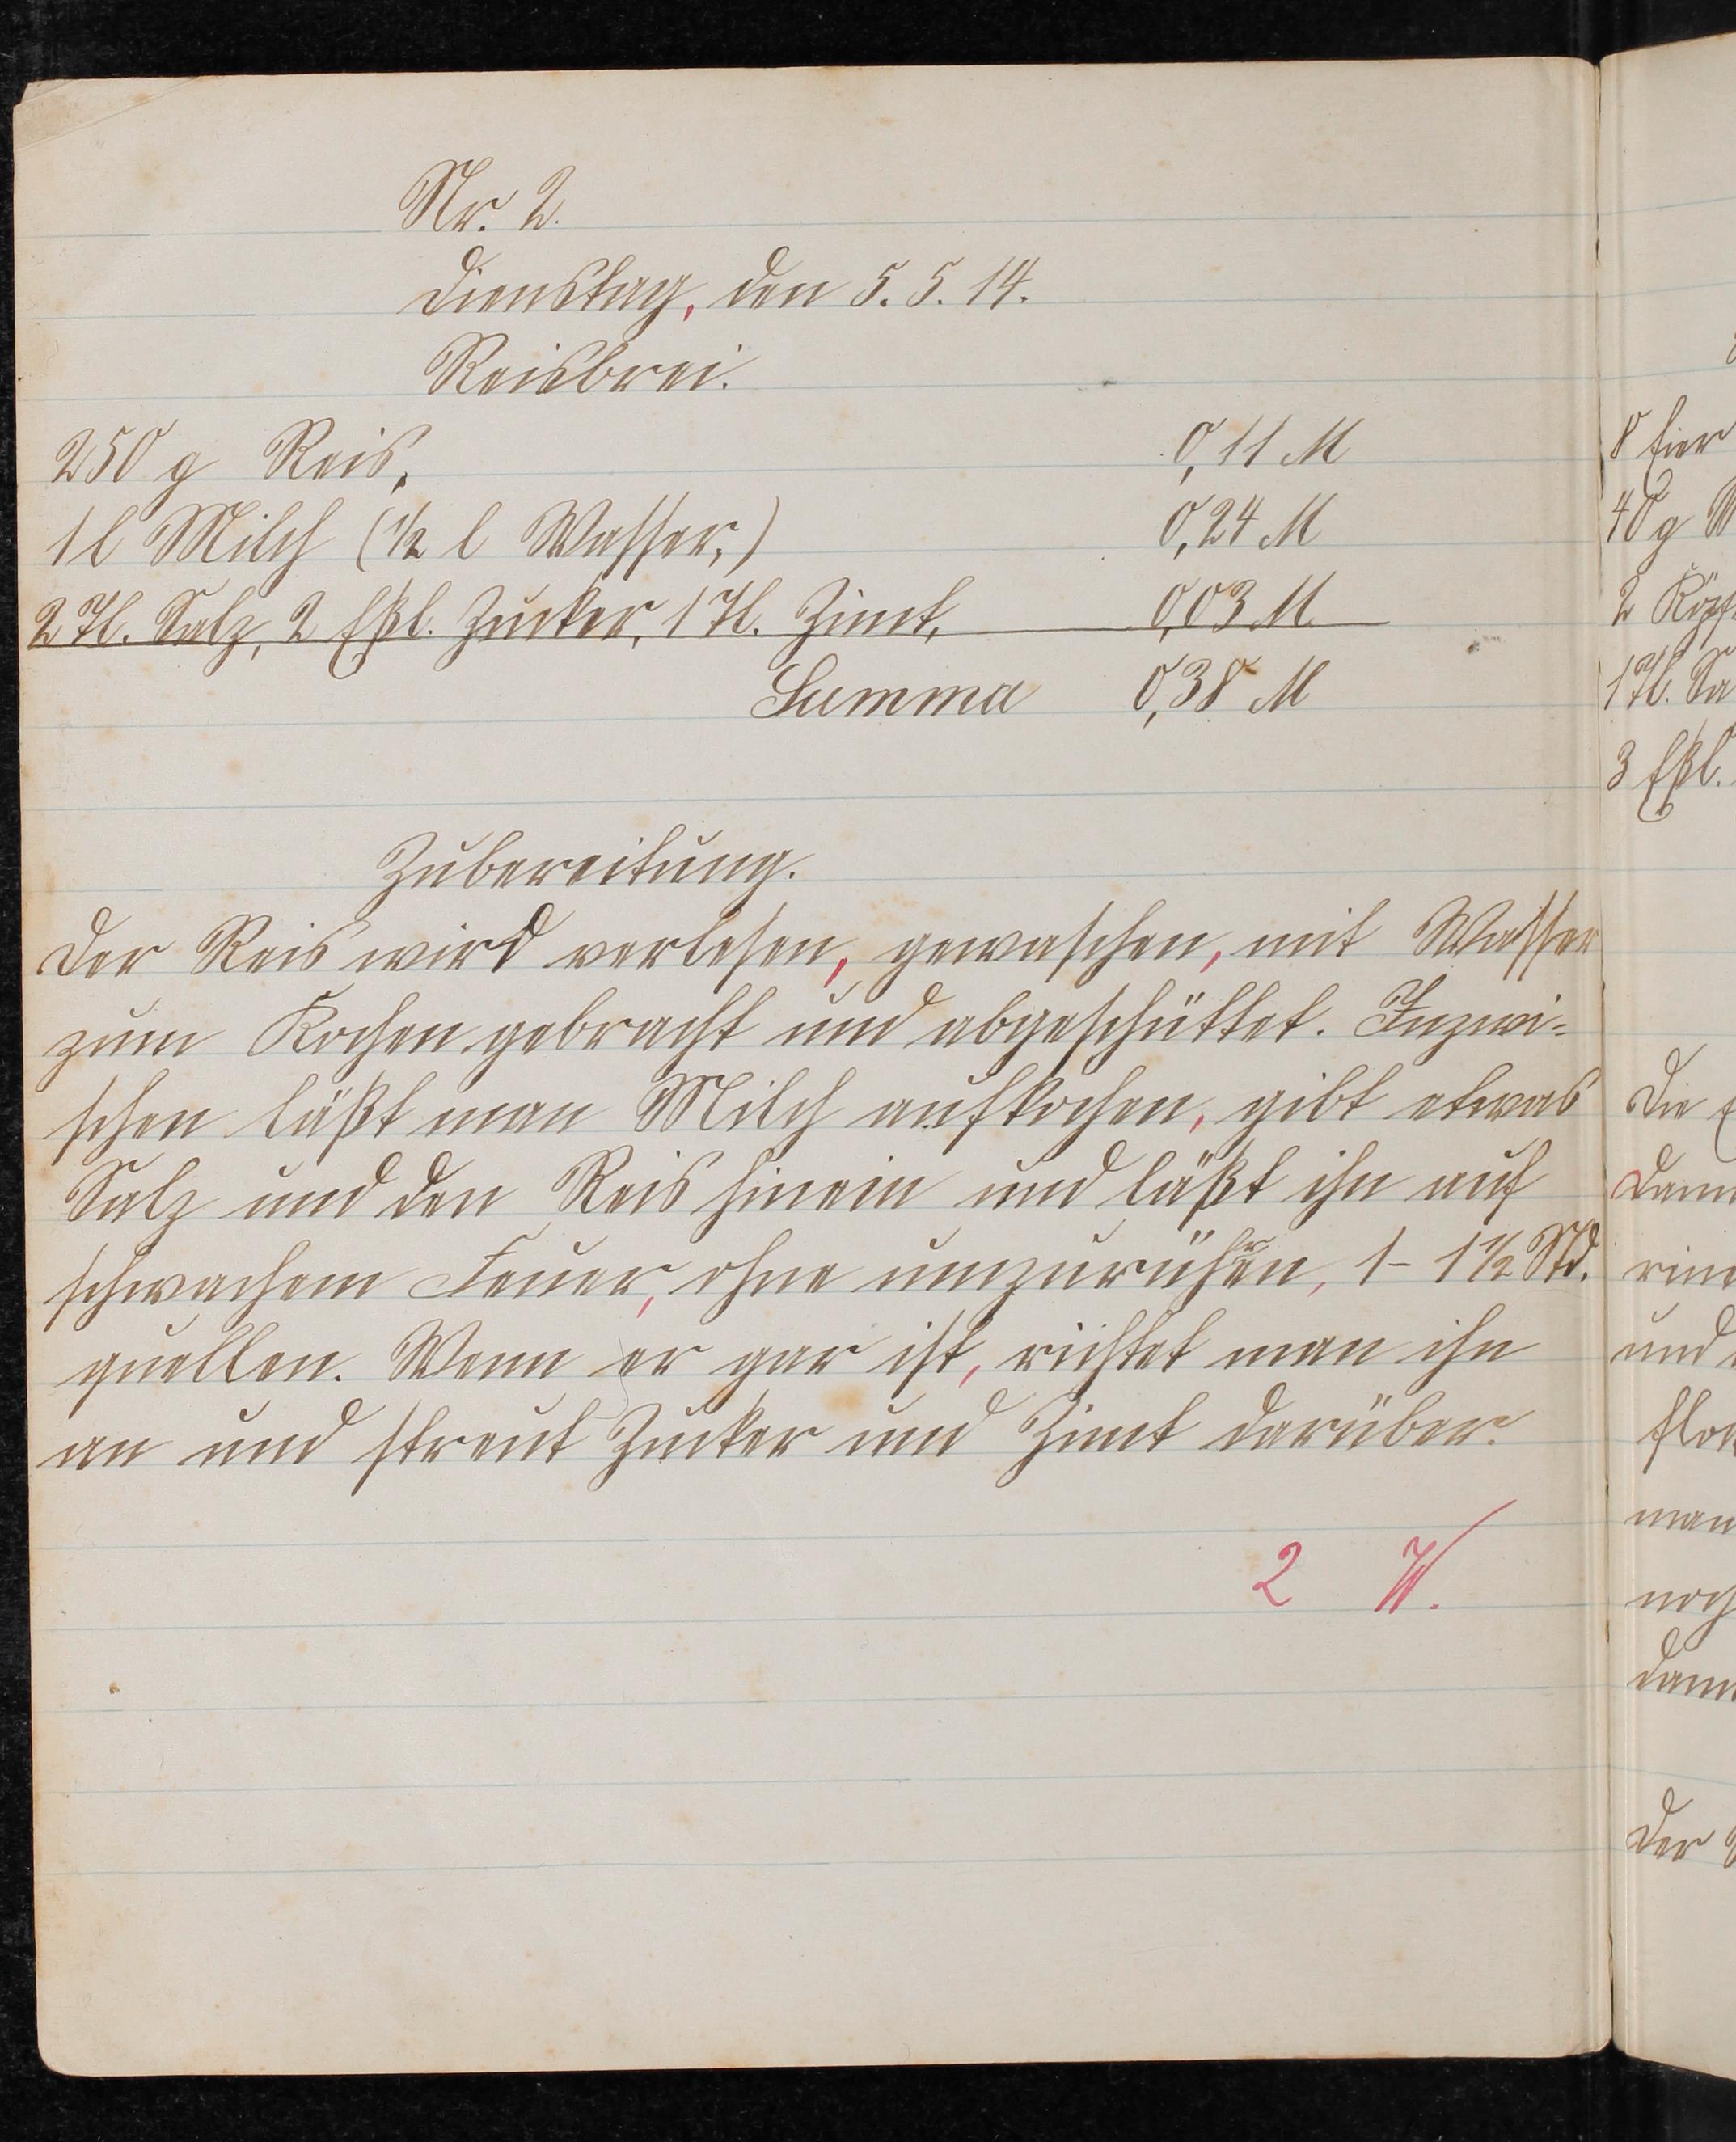 Nr. 2.
Dienstag, den 5. 5. 14.
Reisbrei.
250 g Reis, 0,11 M
1 l Milch (½ l Wasser,) 0,24 M
2 Tl. Salz, 2 Eßl. Zucker, 1 Tl. Zimt, 0,03 M
Summa 0,38 M
Zubereitung.
Der Reis wird verlesen, gewaschen, mit Wasser
zum Kochen gebracht und abgeschüttet. Inzwi-
schen läßt man Milch aufkochen, gibt etwas
Salz und den Reis hinein und läßt ihn auf
schwachem Feuer, ohne umzurühren, 1 - 1 ½ Std.
quellen. Wenn er gar ist, richtet man ihn
an und streut Zucker und Zimt darüber.
2 W.
8 Eier
40 g
2
1 Tl. Sa
3 Eßl.
Die
dann
und
man
noch
dann
Der